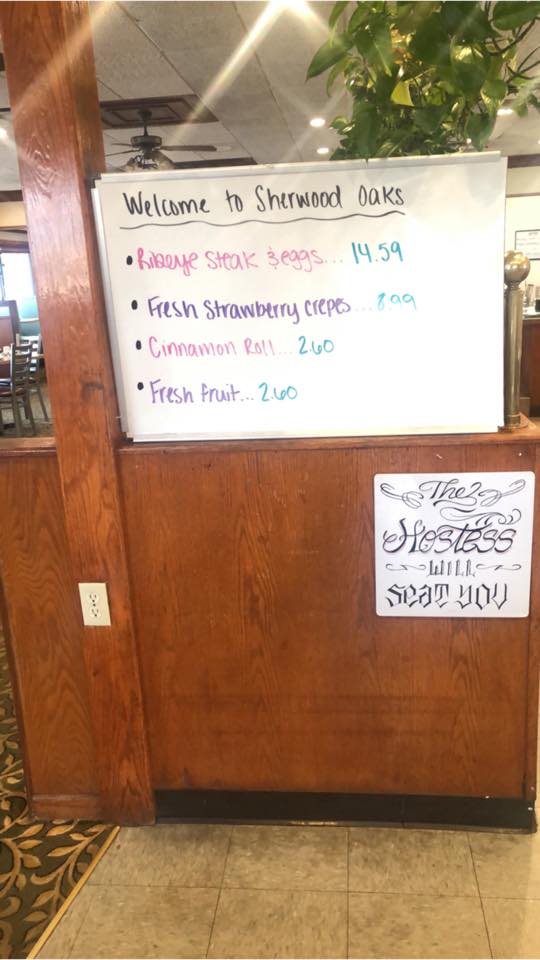 Welcome to Sherwood Oaks
• Ribeye Steak & eggs... 14.59
• Fresh Strawberry crepes... 8.99
• Cinnamon Roll... 2.60
• Fresh fruit... 2.60
The
Hostess
WILL
Seat you